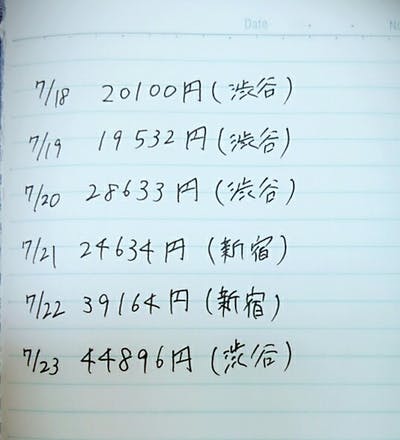 Date
7/18 20100円(渋谷)
7/19 19532円(渋谷)
7/20 28633円(渋谷)
7/21 24634円(新宿)
7/22 39164円(新宿)
7/23 44896円(渋谷)